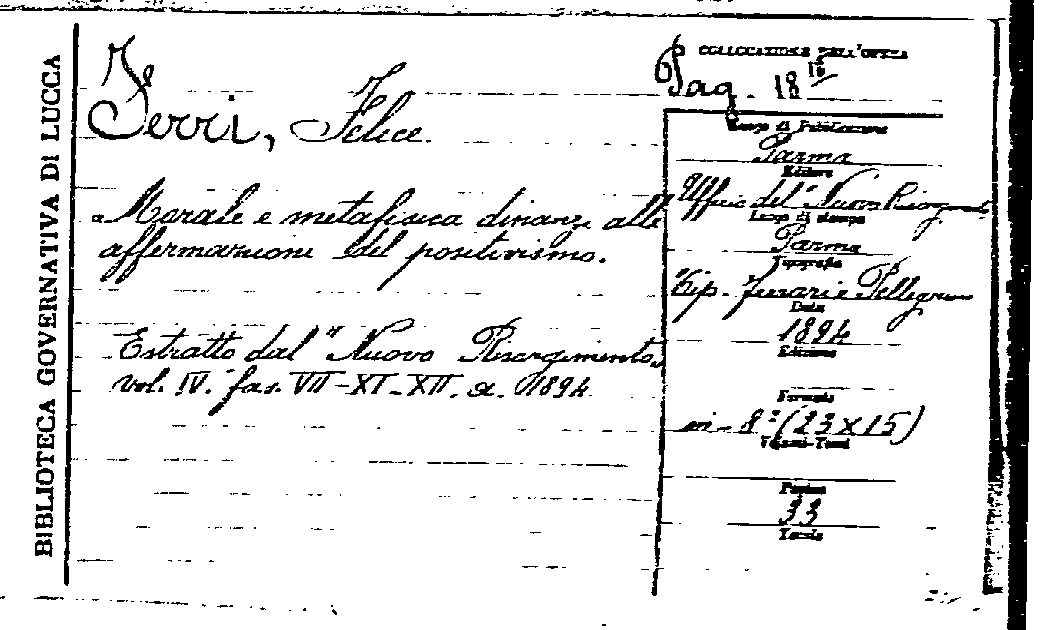 BIBLIOTECA GOVERNATIVA DI LUCCA
Ferri, Felice.
Morale e metafisica dinanzi alle
affermazioni del positivismo.
Estratto dal "Nuovo Risorgimento,
vol. IV. fas. VII-XI-XII. a. 1894
COLLOCAZIONE DELL'OPERA
Pag. 18
Luogo di Pubblicazione
Parma
Editore
Ufficio del "Nuovo Risorgimento
Luogo di stampa
Parma
Tipografia
Tip. Ferrari e Pellegrini
Data
1894
Edizione
Formato
in-8° (23x15)
Volumi-Tomi
Pagine
33
Tavole